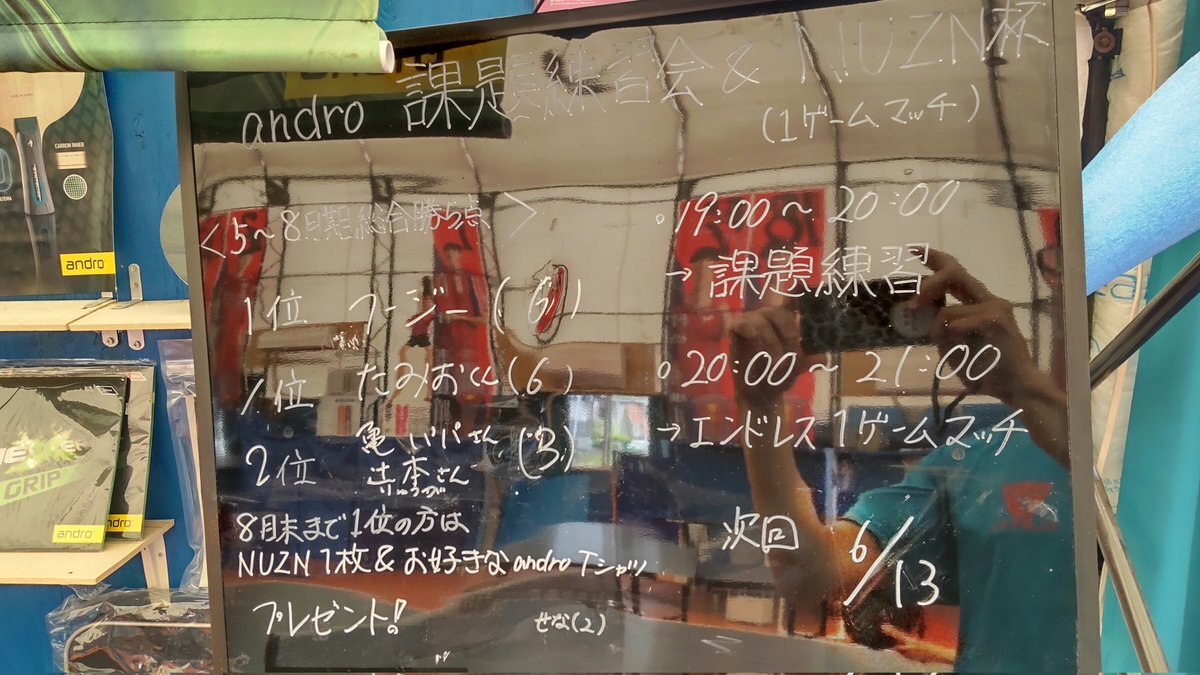 andro 課題練習会 & NUZN杯
(1ゲームマッチ)
<5~8月期総合勝ち点>
1位 フージー (6)
1位 たみおくん (6)
2位 亀パパさん (3)
辻本さん
8月末まで1位の方は
NUZN 1枚 & お好きな andro Tシャツ
プレゼント!
せな(2)
○19:00~20:00
→課題練習
○20:00~21:00
→エンドレス1ゲームマッチ
次回 6/13
CARBON INNER
andro
GRIP
andro
andro